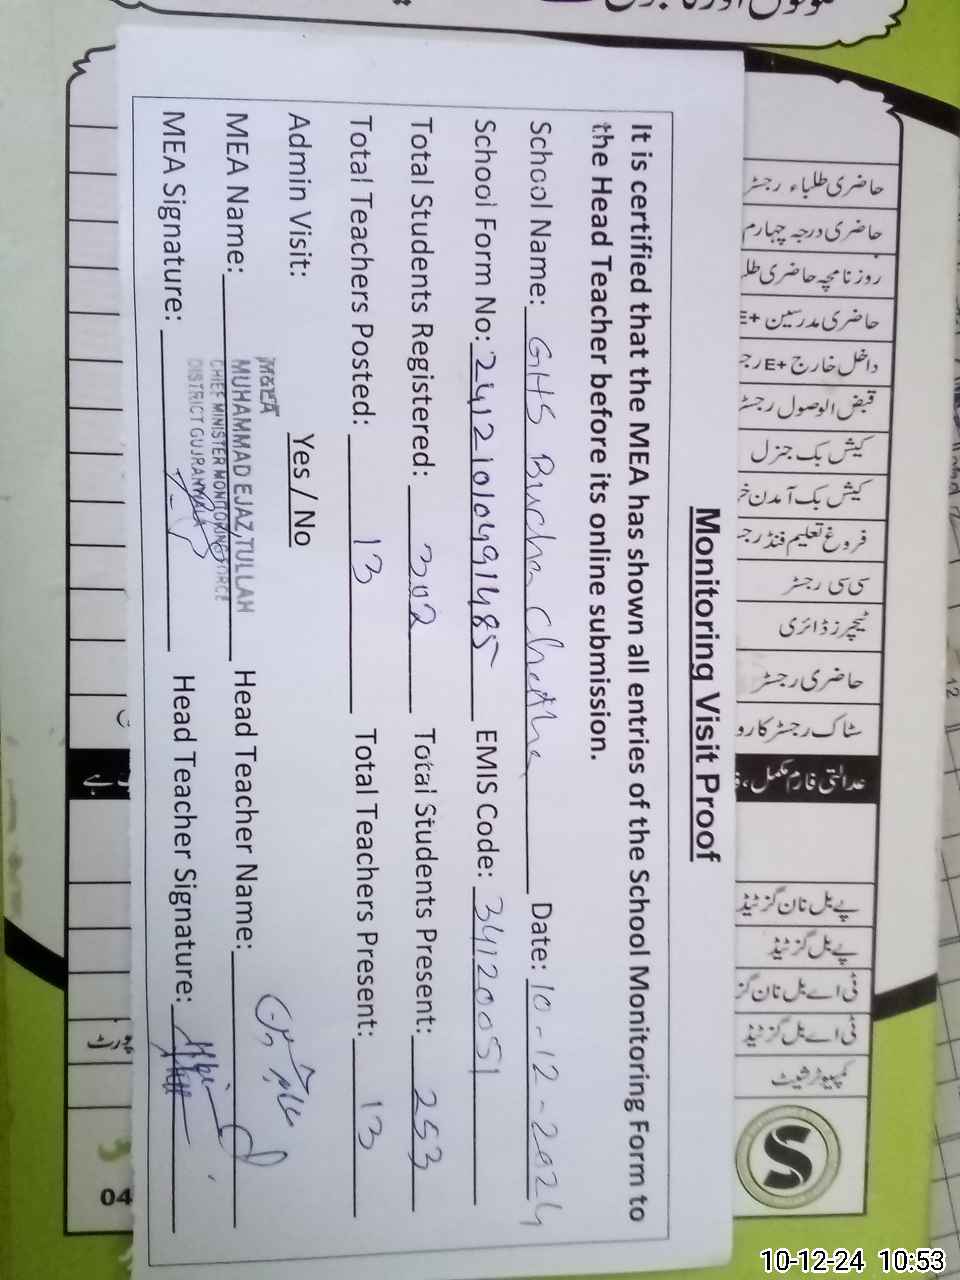 Monitoring Visit Proof
It is certified that the MEA has shown all entries of the School Monitoring Form to
the Head Teacher before its online submission.
School Name: GHS Bucha Chattha Date: 10-12-2024
School Form No: 241210104991485 EMIS Code: 34120051
Total Students Registered: 302 Total Students Present: 253
Total Teachers Posted: 13 Total Teachers Present: 13
Admin Visit: Yes / No
M&EA
MEA Name: MUHAMMAD EJAZ TULLAH Head Teacher Name:
CHIEF MINISTER MONITORING FORCE
DISTRICT GUJRANWALA
MEA Signature: Head Teacher Signature:
حاضری طلباء رجسٹر
حاضری درجہ چہارم
روزنامچہ حاضری طلب
حاضری مدرسین +E
داخل خارج +E رجـ
قبض الوصول رجسٹر
کیش بک جنرل
کیش بک آمدن خر
فروغ تعلیم فنڈ رجـ
سی سی رجسٹر
ٹیچرز ڈائری
حاضری رجسٹر
سٹاک رجسٹر کارو
عدالتی فارم مکمل،
ہے
پے بل نان گزٹیڈ
پے بل گزٹیڈ
ٹی اے بل نان گز
ٹی اے بل گزٹیڈ
کمپیوٹر شیٹ
S
04
12
10-12-24 10:53